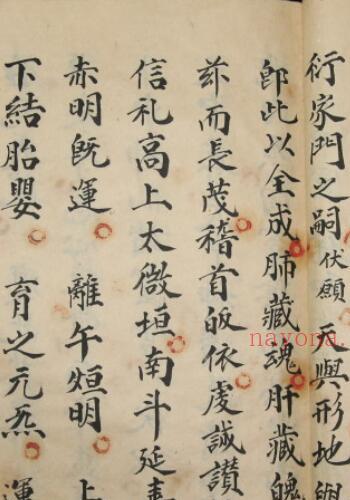 衍家門之嗣伏願 天與形地
卽此以全成肺藏魂肝藏魄
茲而長茂稽首皈依虔誠讃
信礼高上太微垣南斗延壽
赤明旣運 離午烜明 上
下結胎嬰 育之元炁 運
nayona.